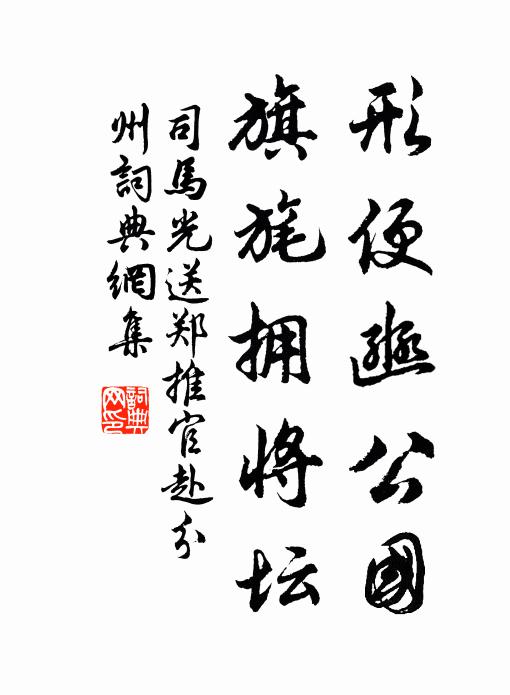 形便豳公國
旗旄拥将坛
司馬光送郑推官赴分
州詞典網集
詞典网印